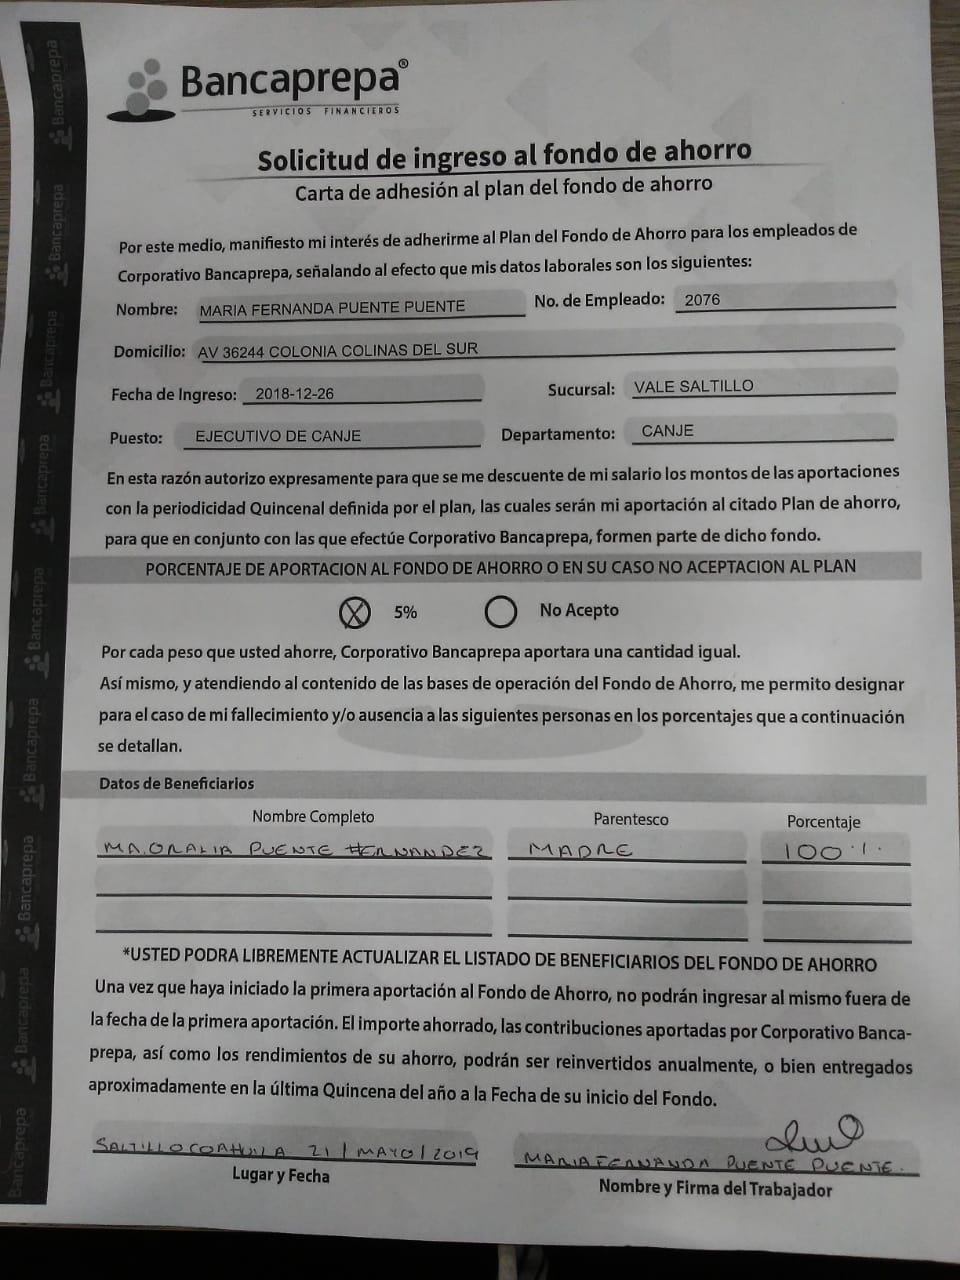 Bancaprepa®
SERVICIOS FINANCIEROS
Solicitud de ingreso al fondo de ahorro
Carta de adhesión al plan del fondo de ahorro
Por este medio, manifiesto mi interés de adherirme al Plan del Fondo de Ahorro para los empleados de
Corporativo Bancaprepa, señalando al efecto que mis datos laborales son los siguientes:
Nombre: MARIA FERNANDA PUENTE PUENTE No. de Empleado: 2076
Domicilio: AV 36244 COLONIA COLINAS DEL SUR
Fecha de Ingreso: 2018-12-26 Sucursal: VALE SALTILLO
Puesto: EJECUTIVO DE CANJE Departamento: CANJE
En esta razón autorizo expresamente para que se me descuente de mi salario los montos de las aportaciones
con la periodicidad Quincenal definida por el plan, las cuales serán mi aportación al citado Plan de ahorro,
para que en conjunto con las que efectúe Corporativo Bancaprepa, formen parte de dicho fondo.
PORCENTAJE DE APORTACION AL FONDO DE AHORRO O EN SU CASO NO ACEPTACION AL PLAN
X 5% No Acepto
Por cada peso que usted ahorre, Corporativo Bancaprepa aportara una cantidad igual.
Así mismo, y atendiendo al contenido de las bases de operación del Fondo de Ahorro, me permito designar
para el caso de mi fallecimiento y/o ausencia a las siguientes personas en los porcentajes que a continuación
se detallan.
Datos de Beneficiarios
Nombre Completo Parentesco Porcentaje
MA. ORALIA PUENTE HERNANDEZ MADRE 100%
*USTED PODRA LIBREMENTE ACTUALIZAR EL LISTADO DE BENEFICIARIOS DEL FONDO DE AHORRO
Una vez que haya iniciado la primera aportación al Fondo de Ahorro, no podrán ingresar al mismo fuera de
la fecha de la primera aportación. El importe ahorrado, las contribuciones aportadas por Corporativo Banca-
prepa, así como los rendimientos de su ahorro, podrán ser reinvertidos anualmente, o bien entregados
aproximadamente en la última Quincena del año a la Fecha de su inicio del Fondo.
SALTILLO COAHUILA 21 / MAYO / 2019 MARIA FERNANDA PUENTE PUENTE.
Lugar y Fecha Nombre y Firma del Trabajador
Bancaprepa
Bancaprepa
Bancaprepa
Bancaprepa
Bancaprepa
Bancaprepa
Bancaprepa
Bancaprepa
Bancaprepa